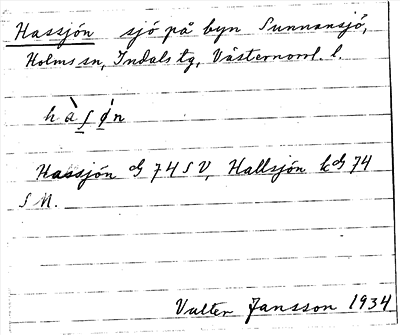 Hassjön sjö på byn Sunnansjö,
Holms sn, Indals tg, Västernorrl. l.
hàʃǿn
Hassjön dʒ 74 SV, Hallsjön kdʒ 74
S N.
Valter Jansson 1934